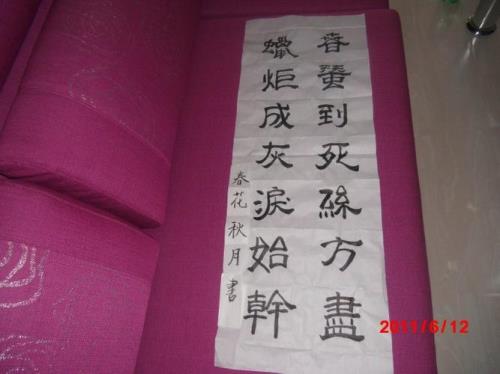 春蠶到死絲方盡
蠟炬成灰淚始幹
春花秋月書
2011/6/12